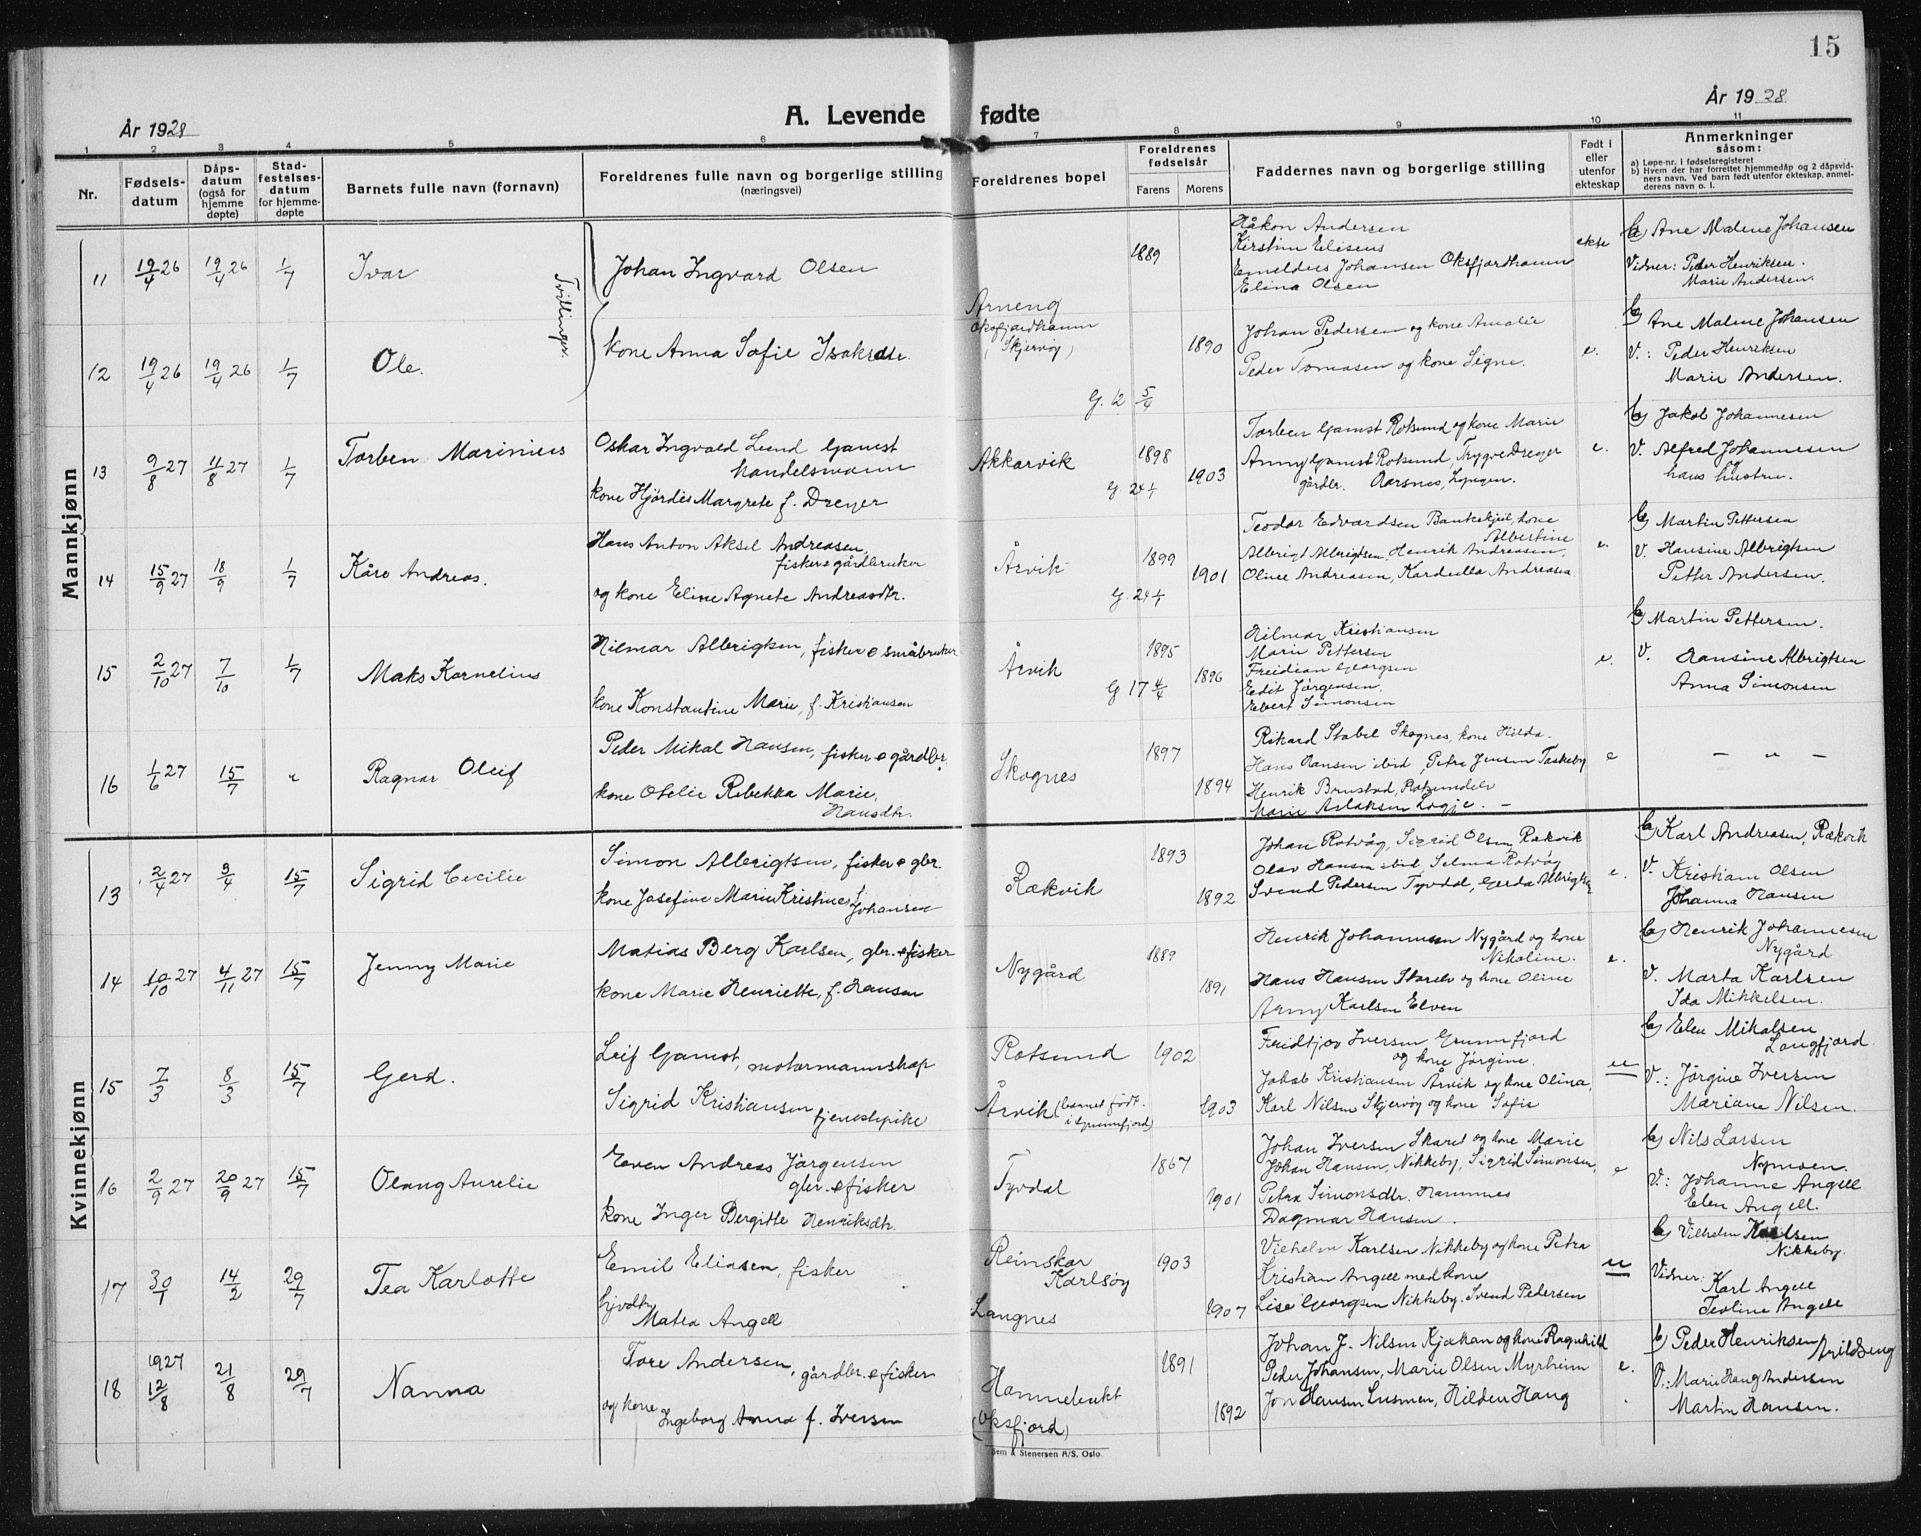 15
År 1928
A. Levende fødte
År 1928
1 2 3 4 5 6 7 8 9 10 11
Nr.
Fødsels-
datum
Dåps-
datum
(også for
hjemme
døpte)
Stad-
festelses-
datum
for hjemme-
døpte
Barnets fulle navn (fornavn)
Foreldrenes fulle navn og borgerlige stilling
(næringsvei)
Foreldrenes bopel
Foreldrenes
fødselsår
Farens
Morens
Faddernes navn og borgerlige stilling
Født i
eller
utenfor
ekteskap
Anmerkninger
såsom:
a) Løpe-nr. i fødselsregisteret
b) Hvem der har forrettet hjemmedåp og 2 dåpsvid-
ners navn. Ved barn født utenfor ekteskap, anmel-
derens navn o. l.
Mannkjønn
11 19/4 26 19/4 26 1/7 Ivar
Tvillinger
Johan Ingvard Olsen
1889
Håkon Andersen
Kirstin Elisens
Johansen Oksfjordhamn
Elina Olsen
ekte
b) Ane Malene Johansen
Vidner: Peder Henriksen.
Marie Andersen.
12 19/4 26 19/4 26 1/7 Ole.
kone Anna Sofie Isaksdtr.
Arneng
Oksfjordhamn
(Skjervøy)
1890
G. 12 5/4
Johan Pedersen og kone Amalie
Peder Tomasen og kone Signe.
e.
b) Ane Malene Johansen
V.: Peder Henriksen
Marie Andersen.
13 9/8 27 11/8 27 1/7 Torben Marinius
Oskar Ingvald Lund Gamst
Handelsmann
kone Hjördis Margrete f. Dreyer
Akkarvik
1898
1903
G. 24 1/1
Torben Gamst Rotsund og kone Marie
Anny Gamst Rotsund, Trygve Dreyer
gårdbr. Aarsnes, Lyngen.
e.
b) Jakob Johannesen
V. Alfred Johannesen
og
hans hustru.
14 15/9 27 18/9 1/7 Kåre Andreas.
Hans Anton Aksel Andreasen,
fisker e gårdbruker
og kone Eline Agnete Andreasdtr.
Årvik
1899
1901
G. 24 1/1
Teodor Edvardsen Bankekjeil, kone
Albertine
Albrigt Albrigtsen, Henrik Andreasen,
Oline Andreasen, Andreasen
e.
b) Martin Pettersen
V. Hansine Albrigtsen
Petter Andersen.
15 2/10 27 7/10 1/7 Maks Kornelius
Hilmar Albrigtsen, fisker e småbruker
kone Konstantine Marie, f. Kristiansen
Årvik
1895
1896
G 17 4/4
Hilmar Kristiansen
Marie Pettersen
Georgsen
Edit Jörgensen.
Ebert Simonsen
e.
b) Martin Pettersen.
V. Hansine Albrigtsen
Anna Simonsen
16 1/6 27 15/7 " Ragnar Oleif
Peder Mikal Hansen, fisker e gårdbr.
kone Otelie Rebekka Marie,
Hansdtr.
Skognes
1897
1894
Rikard Stabel Skognes, kone Hilda.
Hans Hansen ibid, Petra Jensen Taskeby
Henrik Brustad, Rotsundelv
Marie Aslaksen
e
— " —
Kvinnekjønn
13 2/4 27 3/4 15/7 Sigrid Cecilie
Simon Albrigtsen, fisker e gbr.
kone Josefine Marie Kristine f.
Johansen
Rækvik
1893
1892
Johan Rotvåg, Sigrid Olsen, Rækvik
Olav Hansen ibid, Selma Rotvåg
Svend Pedersen Tyvdal, Gerda Albrigtsen
e.
b) Karl Andreasen, Rækvik
V. Kristian Olsen
Johanna Hansen
14 10/10 27 4/11 27 15/7 Jenny Marie
Matias Berg Karlsen, gbr. e fisker
kone Marie Henriette, f. Hansen
Nygård
1889
1891
Henrik Johannesen Nygård og kone
Nikoline.
Hans Hansen Storelv og kone Oline
Arny Karlsen Elven
e.
b) Henrik Johannesen
Nygård
V. Marta Karlsen
Ida Mikkelsen.
15 7/3 8/3 15/7 Gerd.
Leif Gamst, motormannskap
Sigrid Kristiansen
tjenestepike
Rotsund
Årvik (barnet født
i Grunnfjord)
1902
1903
Fridtjov Iversen, Grunnfjord
og kone Jörgine.
Jakob Kristiansen Årvik og kone Olina,
Karl Nilsen Skjervøy og kone Sofie
u
b) Elen Mikalsen
Langfjord.
V.: Jörgine Iversen
Mariane Nilsen.
16 2/9 27 20/9 27 15/7 Olaug Aurelie
Even Andreas Jörgensen
gbr. e fisker
kone Inger Bergitte Henriksdtr.
Tyvdal
1867
1901
Johan Iversen Skaret og kone Marie
Johan Hansen, Nikkeby, Sigrid Simonsen,
Petra Simonsdtr. Hamnnes
Dagmar Hansen.
e
b) Nils Larsen
Nymoen.
V: Johanne Angell
Elen Angell.
17 30/1 14/2 29/7 Tea Karlotte
Emil Eliasen, fisker
Gjvdtr
Matea Angell
Reinskar
Karlsöy
Langnes
1903
1907
Vilhelm Karlsen Nikkeby og kone Petra
Kristian Angell med kone
Lise Georgsen Nikkeby. Svend Pedersen
u
b) Vilhelm Karlsen
Nikkeby.
Vidner: Karl Angell
Teoline Angell
18 1927 12/8 21/8 29/7 Nanna
Tore Andersen, gårdbr. e fisker
og kone
Ingeborg Anna f. Iversen
Hamnebukt
(Oksfjord)
1891
1892
Johan J. Nilsen Kjækan og kone Ragnhild
Peder Johansen, Marie Olsen Myrheim
Jon Hansen Lusmen, Hilden Haug
e.
b) Peder Henriksen
V.: Marie Haug Andersen
Martin Hansen.
Sem & Stenersen A/S, Oslo.